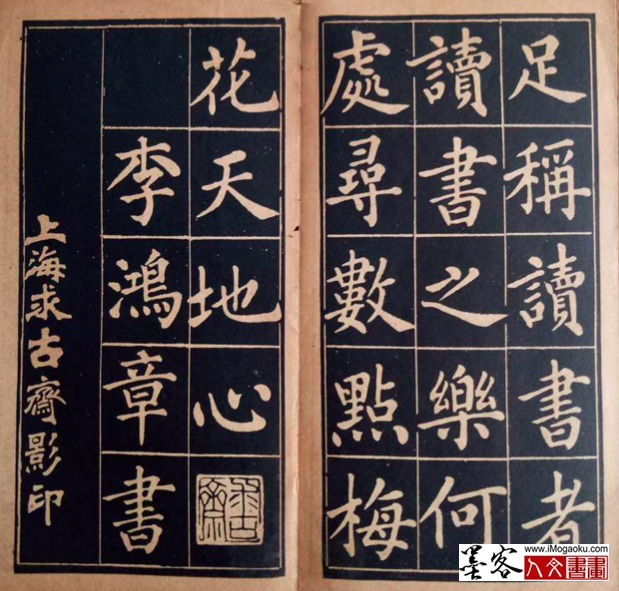 足稱讀書者
讀書之樂何
處尋數點梅
花天地心
求古齋
李鴻章書
上海求古齋影印
墨客
www.iMogaoku.com
人文書畫